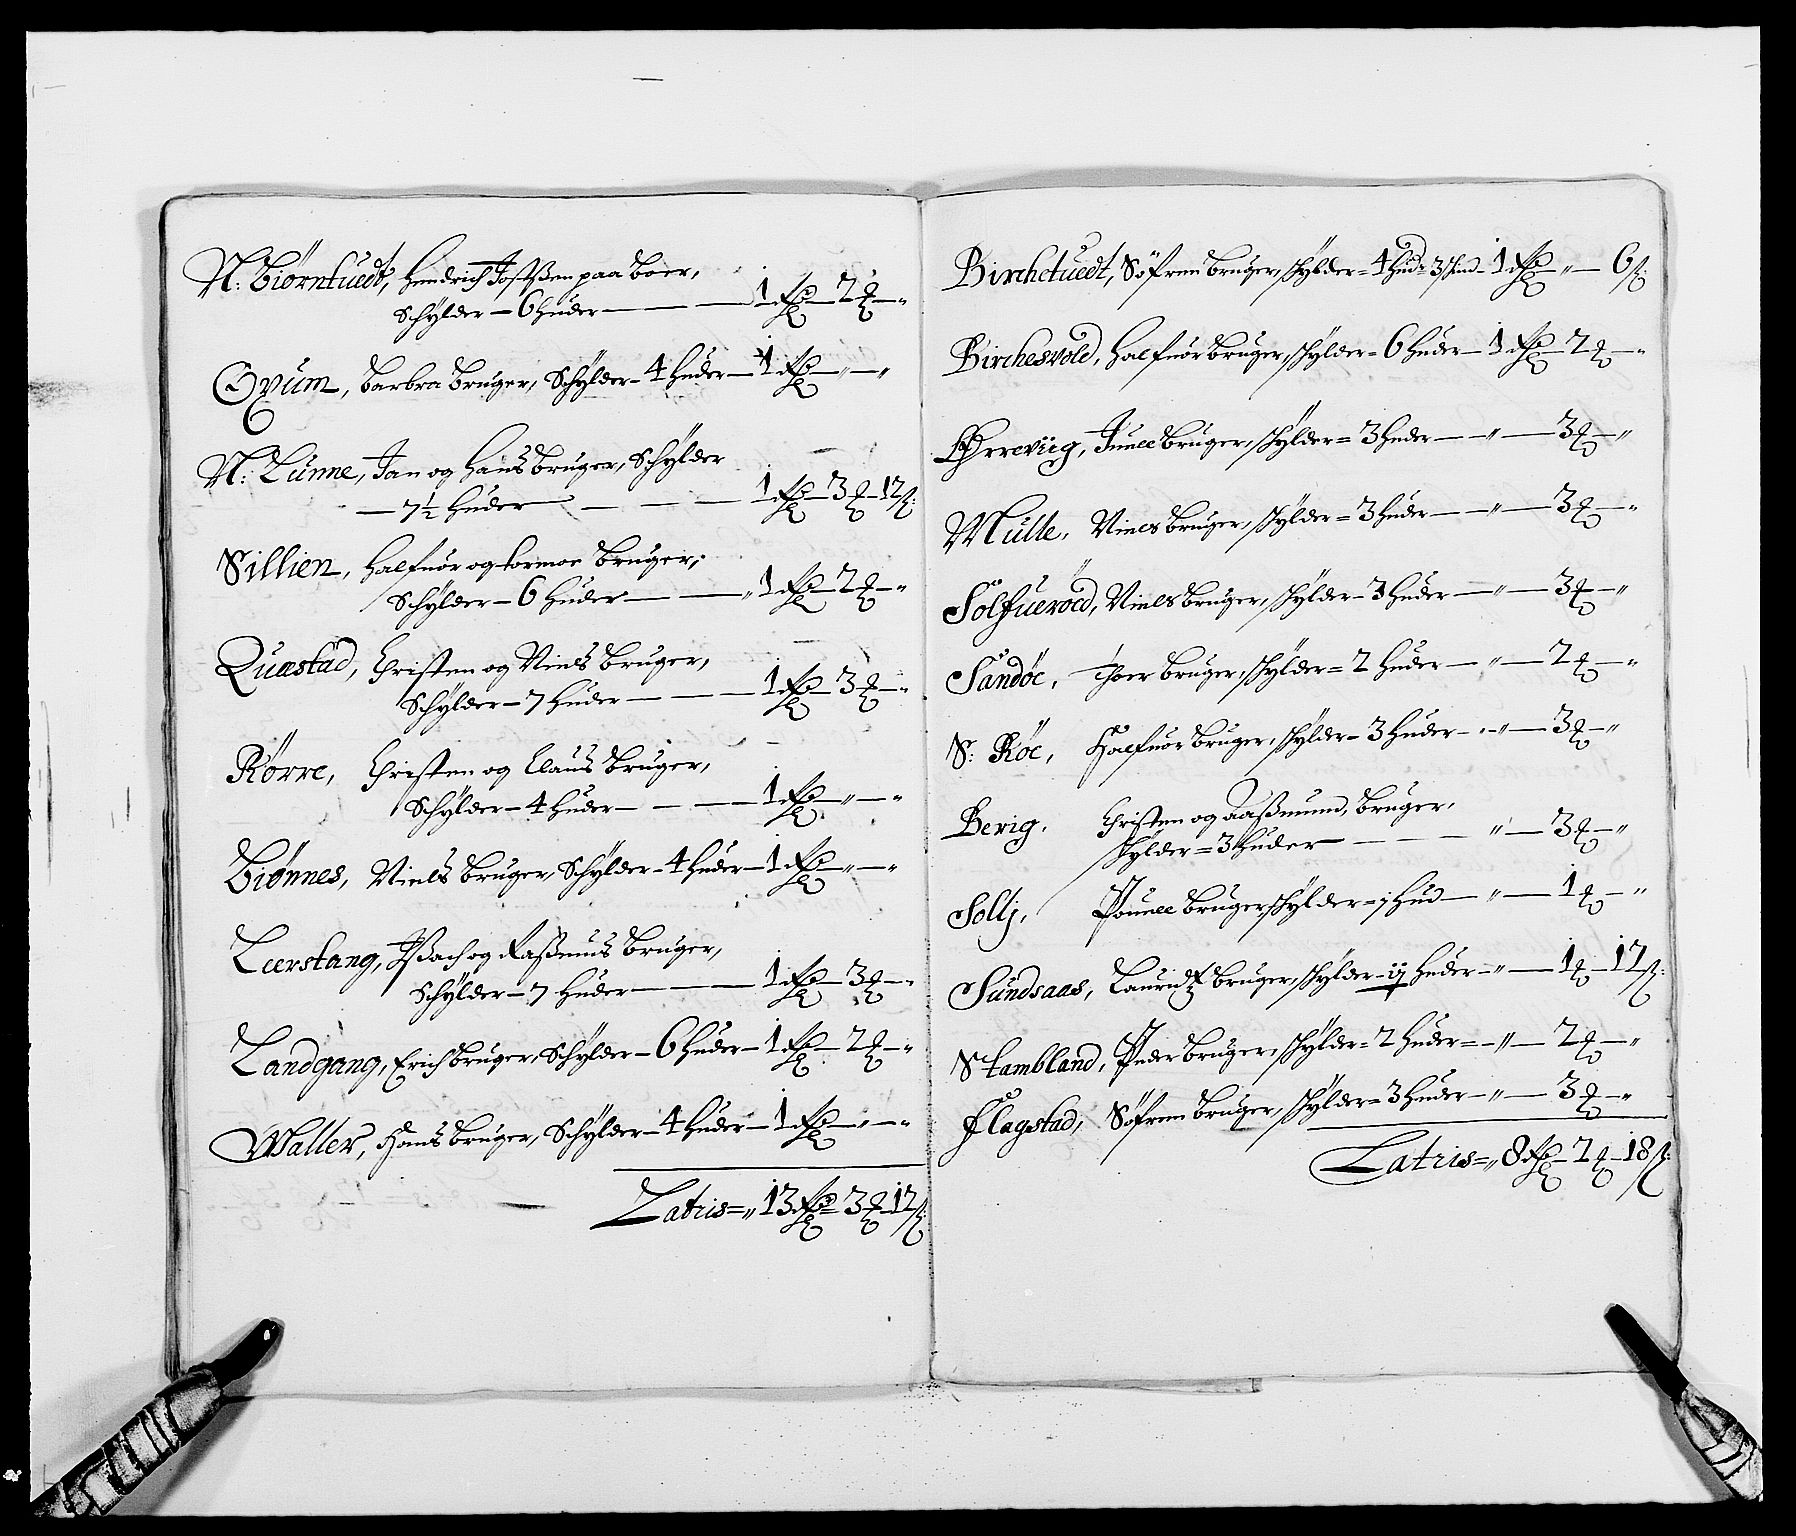 N: Biørntuedt, Hendrich Jostßen paa boer,
Schÿlder – 6 Huder — 1 Rdr – 2 ₰ – „
Opum, Barbra Bruger, Schÿlder – 4 Huder – 1 Rdr – „ – „
N: Lunne, Jan og Hans Bruger, Schÿlder
– 7½ Huder — 1 Rdr – 3 ₰ – 12 ß:
Sillien, Halfuor og tormoe Bruger,
Schÿlder – 6 Huder — „ 1 Rdr – 2 ₰ – „
Quæstad, Christen og Niels Bruger,
Schÿlder – 7 Huder — 1 Rdr – 3 ₰ – „
Rørre, Christen og Claus Bruger,
Schÿlder – 4 Huder — 1 Rdr – „ – „
Biønnes, Niels Bruger, Schÿlder – 4 Huder – 1 Rdr – „ – „
Leerstang, Ißach og Raßmus Bruger,
Schÿlder – 7 Huder — 1 Rdr – 3 ₰ – „
Landgang, Erich Bruger, Schÿlder – 6 Huder – 1 Rdr – 2 ₰ – „
Waller, Hans Bruger, Schÿlder – 4 Huder – 1 Rdr – „ – „
Latris = „ 13 Rdr = 3 ₰ – 12 ß:
Birchetuedt, Søfren Bruger, schÿlder = 4 Hud = 3 skind – 1 Rdr – „ – 6 ß:
Birchesvold, Halfuor Bruger, schÿlder = 6 Huder – 1 Rdr – 2 ₰ – „
Ørreviig, Juell Bruger, schÿlder = 3 Huder — „ — 3 ₰ – „
Mulle, Niels Bruger, schÿlder = 3 Huder — „ — 3 ₰ – „
Solfuerød, Niels Bruger, schÿlder – 3 Huder — „ — 3 ₰ – „
Sandøe, Thoer Bruger, schÿlder = 2 Huder — „ — 2 ₰ – „
S: Røe, Halfuor Bruger, schÿlder – 3 Huder – „ — 3 ₰ – „
Berig, Christen og Aaßmund, Bruger,
schÿlder = 3 Huder — „ — 3 ₰ – „
Sollj, Pouell Bruger schÿlder = 1 Hud — „ — 1 ₰ – „
Sundsaas, Lauridtz Bruger, schÿlder – ij Huder – „ — 1 ₰ – 12 ß:
Stambland, Peder Bruger, schÿlder = 2 Huder = – „ — 2 ₰ – „
Flagstad, Søfren Bruger, schÿlder = 3 Huder – „ — 3 ₰ – „
Latris = „ 8 Rdr – 2 ₰ – 18 ß: